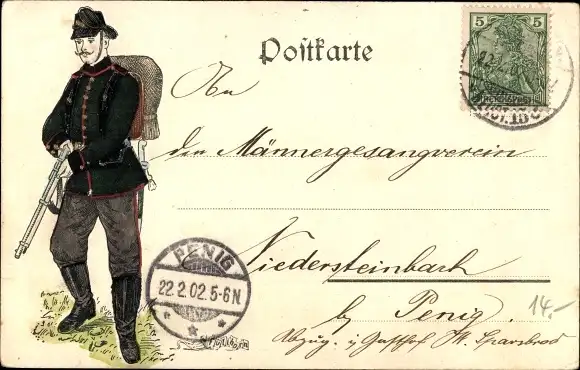 Postkarte
5 5
An
den Männergesangverein
Niedersteinbach
by Penig.
Abzug. i/ Gasthof H. Sparsbrod
PENIG
22.2.02.5-6N
14.-